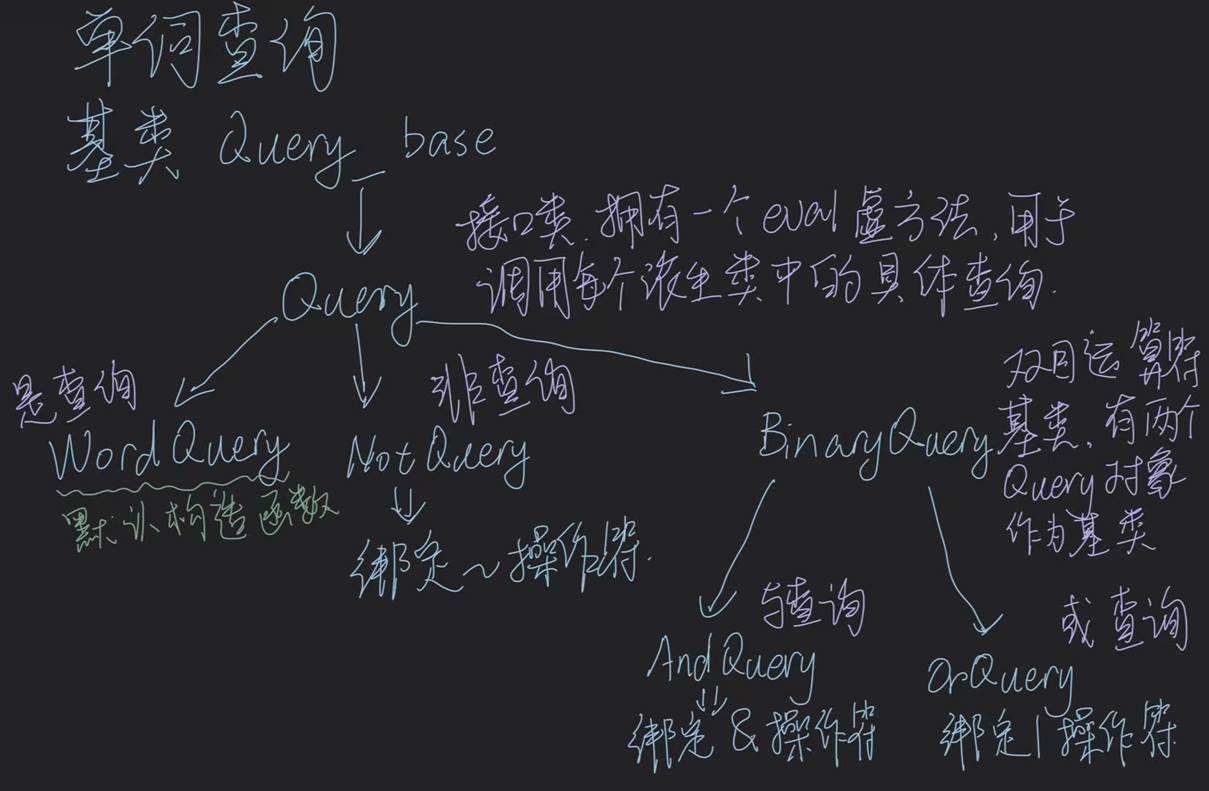 单词查询
基类 Query_base
接口类.拥有一个eval虚方法,用于
调用每个派生类中的具体查询.
Query
是查询
WordQuery
默认构造函数
非查询
NotQuery
绑定~操作符.
BinaryQuery
双目运算符
基类,有两个
Query对象
作为基类
与查询
AndQuery
绑定&操作符
或查询
OrQuery
绑定|操作符